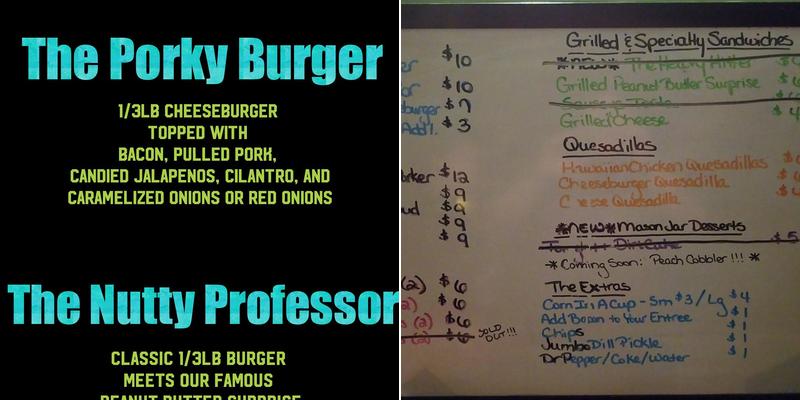 The Porky Burger
1/3LB CHEESEBURGER
TOPPED WITH
BACON, PULLED PORK,
CANDIED JALAPENOS, CILANTRO, AND
CARAMELIZED ONIONS OR RED ONIONS
The Nutty Professor
CLASSIC 1/3LB BURGER
MEETS OUR FAMOUS
PEANUT BUTTER SURPRISE
$10
$10
burger $7
Add'l. $3
$12
$9
$9
$9
$9
(2) $6
$6
(2) $6
(2) $6 SOLD OUT!!!
Grilled & Specialty Sandwiches
*NEW* The Heavy Hitter
Grilled Peanut Butter Surprise
Grilled Cheese $4
Quesadillas
Hawaiian Chicken Quesadillas
Cheeseburger Quesadilla
Cheese Quesadilla
*NEW* Mason Jar Desserts
Dirt Cake $5
*Coming Soon: Peach Cobbler!!! *
The Extras
Corn In A Cup - Sm $3 / Lg $4
Add Bacon to Your Entree $1
Chips $1
Jumbo Dill Pickle $1
Dr Pepper/Coke/Water $1